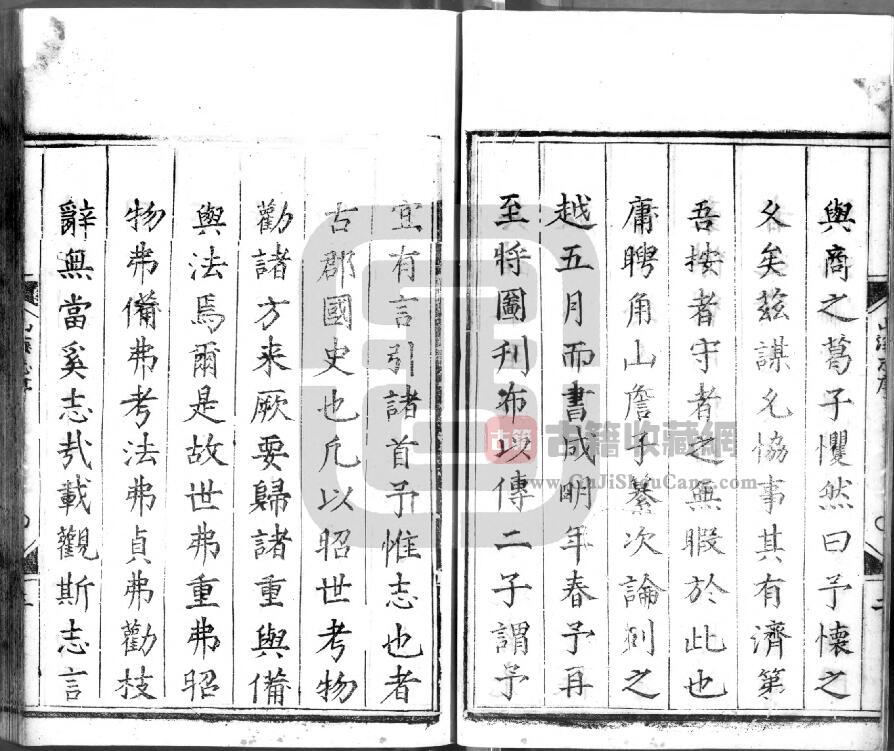 與商之葛子懼然曰予懷之
久矣茲謀允協事其有濟第
吾按者守者之無暇於此也
庸聘角山詹子纂次論刻之
越五月而書成明年春予再
至將圖刊布以傳二子謂予
宜有言引諸首予惟志也者
古郡國史也凡以昭世考物
勸諸方来厥要歸諸重與備
與法焉爾是故世弗重弗昭
物弗備弗考法弗貞弗勸枝
辭無當奚志㢤載觀斯志言
古籍收藏網
www.GuJiShouCang.com
古籍
二